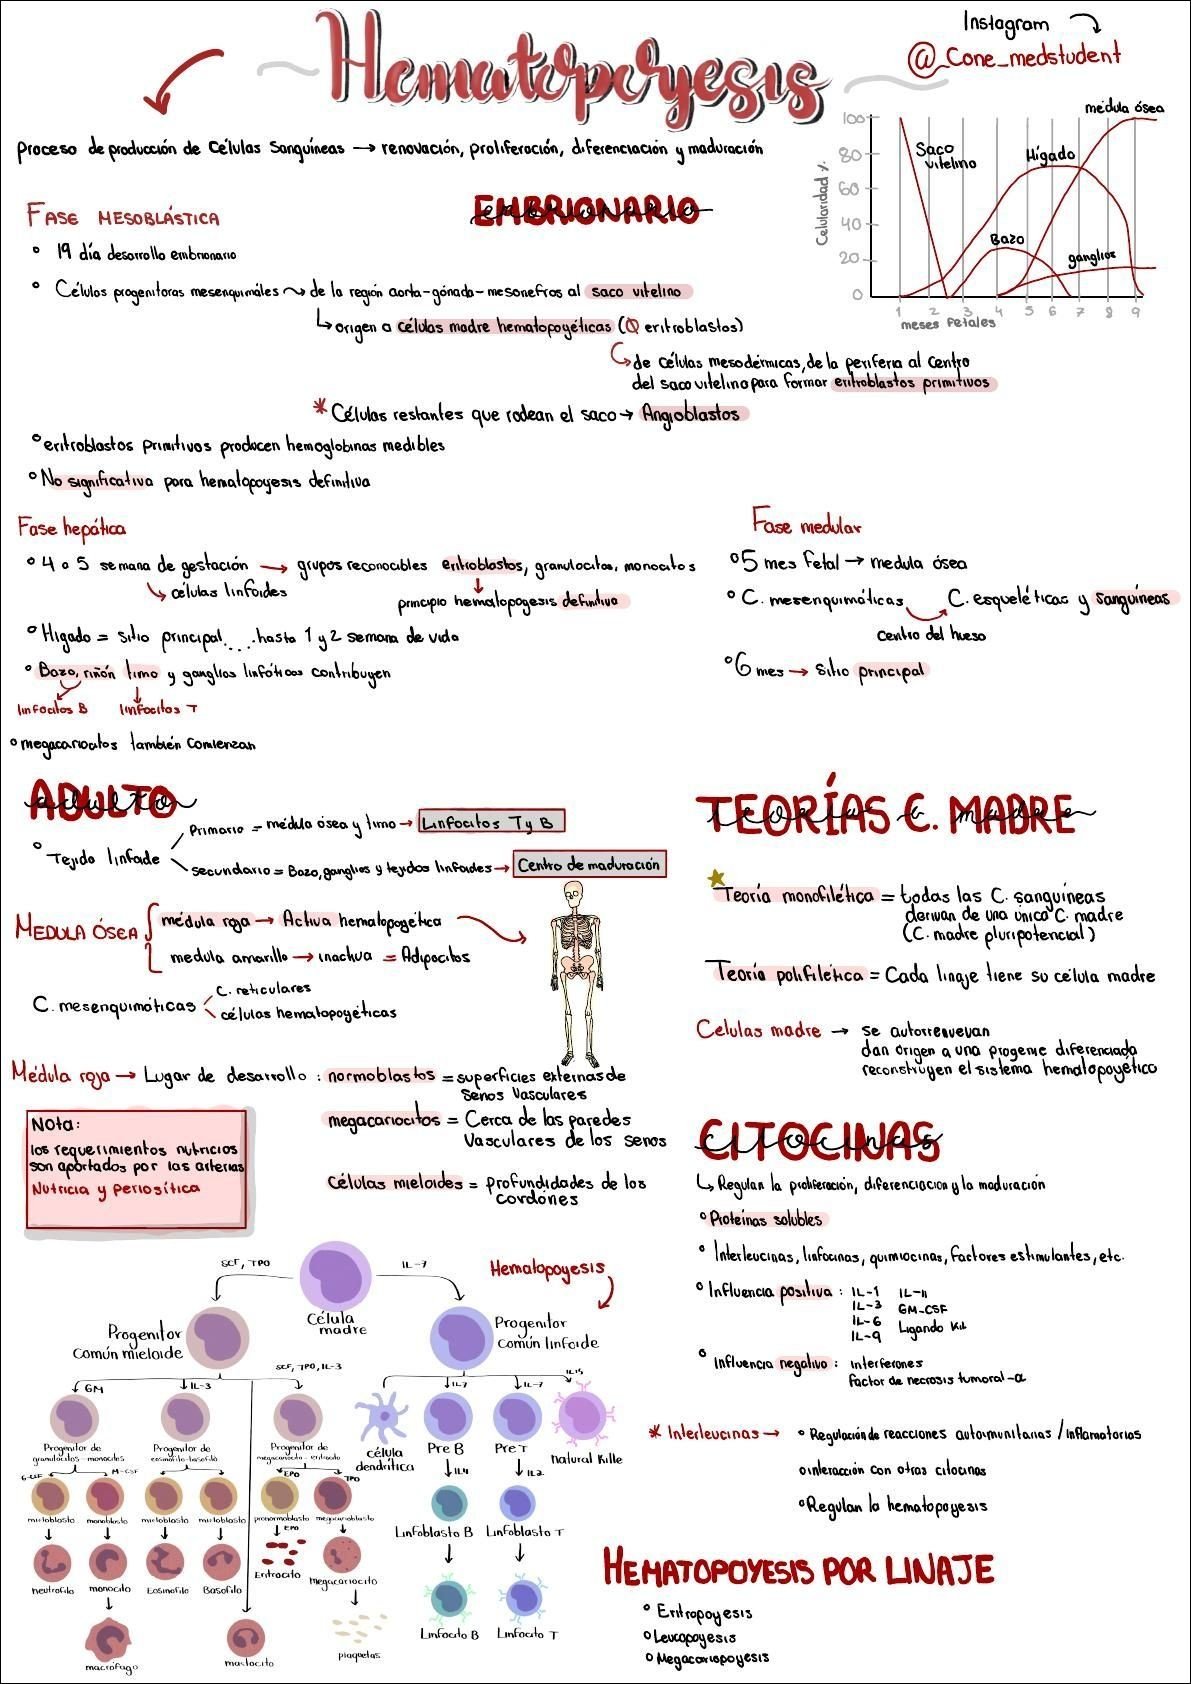 Hematopoyesis
Instagram
@_Cone_medstudent
Proceso de producción de Células Sanguíneas → renovación, proliferación, diferenciación y maduración
médula ósea
Saco vitelino
Hígado
Bazo
ganglios
Celularidad %
100
80
60
40
20
0
1 2 3 4 5 6 7 8 9
meses fetales
EMBRIONARIO
embrionario
FASE MESOBLÁSTICA
° 19 día desarrollo embrionario
° Células progenitoras mesenquimáles ⤳ de la región aorta-gónada-mesonefros al saco vitelino
↳ origen a células madre hematopoyéticas (∅ eritroblastos)
↳ de células mesodérmicas, de la periferia al centro
del saco vitelino para formar eritroblastos primitivos
* Células restantes que rodean el saco → Angioblastos
° eritroblastos primitivos producen hemoglobinas medibles
° No significativa para hematopoyesis definitiva
Fase hepática
° 4 o 5 semana de gestación → grupos reconocibles eritroblastos, granulocitos, monocitos
↳ células linfoides
↓
principio hematopogesis definitiva
° Hígado = sitio principal....hasta 1 y 2 semana de vida
° Bazo, riñón timo y ganglios linfáticos contribuyen
linfocitos B linfocitos T
° megacariocitos también comienzan
Fase medular
° 5 mes fetal → medula ósea
° C. mesenquimáticas C. esqueléticas y sanguíneas
centro del hueso
° 6 mes → sitio principal
ADULTO
adulto
° Tejido linfoide
Primario = médula ósea y timo → Linfocitos T y B
secundario = Bazo, ganglios y tejidos linfoides → Centro de maduración
MEDULA ÓSEA
médula roja → Activa hematopogética
medula amarilla → inactiva = Adipocitos
C. mesenquimáticas
C. reticulares
células hematopoyéticas
Médula roja → Lugar de desarrollo : normoblastos = superficies externas de
senos vasculares
megacariocitos = Cerca de las paredes
Vasculares de los senos
Células mieloides = profundidades de los
cordones
Nota:
los requerimientos nutricios
son aportados por las arterias
Nutricia y periosítica
TEORÍAS C. MADRE
teorías c. madre
Teoría monofilética = todas las C. sanguíneas
derivan de una única C. madre
(C. madre pluripotencial)
Teoría polifilética = Cada linaje tiene su célula madre
Celulas madre → se autorrenuevan
dan origen a una progenie diferenciada
reconstruyen el sistema hematopoyético
CITOCINAS
citocinas
↳ Regulan la proliferación, diferenciacion y la maduración
° Proteínas solubles
° Interleucinas, linfocinas, quimiocinas, factores estimulantes, etc.
° Influencia positiva : IL-1 IL-11
IL-3 GM-CSF
IL-6 Ligando Kit
IL-9
° Influencia negativa : interferones
factor de necrosis tumoral-α
* Interleucinas → ° Regulación de reacciones autoinmunitarias / inflamatorias
° interacción con otras citocinas
° Regulan la hematopoyesis
HEMATOPOYESIS POR LINAJE
° Eritropoyesis
° Leucopoyesis
° Megacariopoyesis
Hematopoyesis
SCF, TPO
IL-7
Célula madre
Progenitor común mieloide
Progenitor común linfoide
SCF, TPO, IL-3
GM
IL-3
IL7
IL-7
IL15
Progenitor de granulocitos-monocitos
Progenitor de eosinofilo-basofilo
Progenitor de megacariocito-eritrocito
célula dendrítica
Pre B
Pre T
natural Kille
G-CSF
M-CSF
EPO
TPO
IL4
IL2
mieloblasto
monoblasto
mieloblasto
mieloblasto
pronormoblasto
megacarioblasto
Linfoblasto B
Linfoblasto T
EPO
neutrofilo
monocito
Eosinofilo
Basofilo
Eritrocito
megacariocito
Linfocito B
Linfocito T
macrófago
mastocito
plaquetas